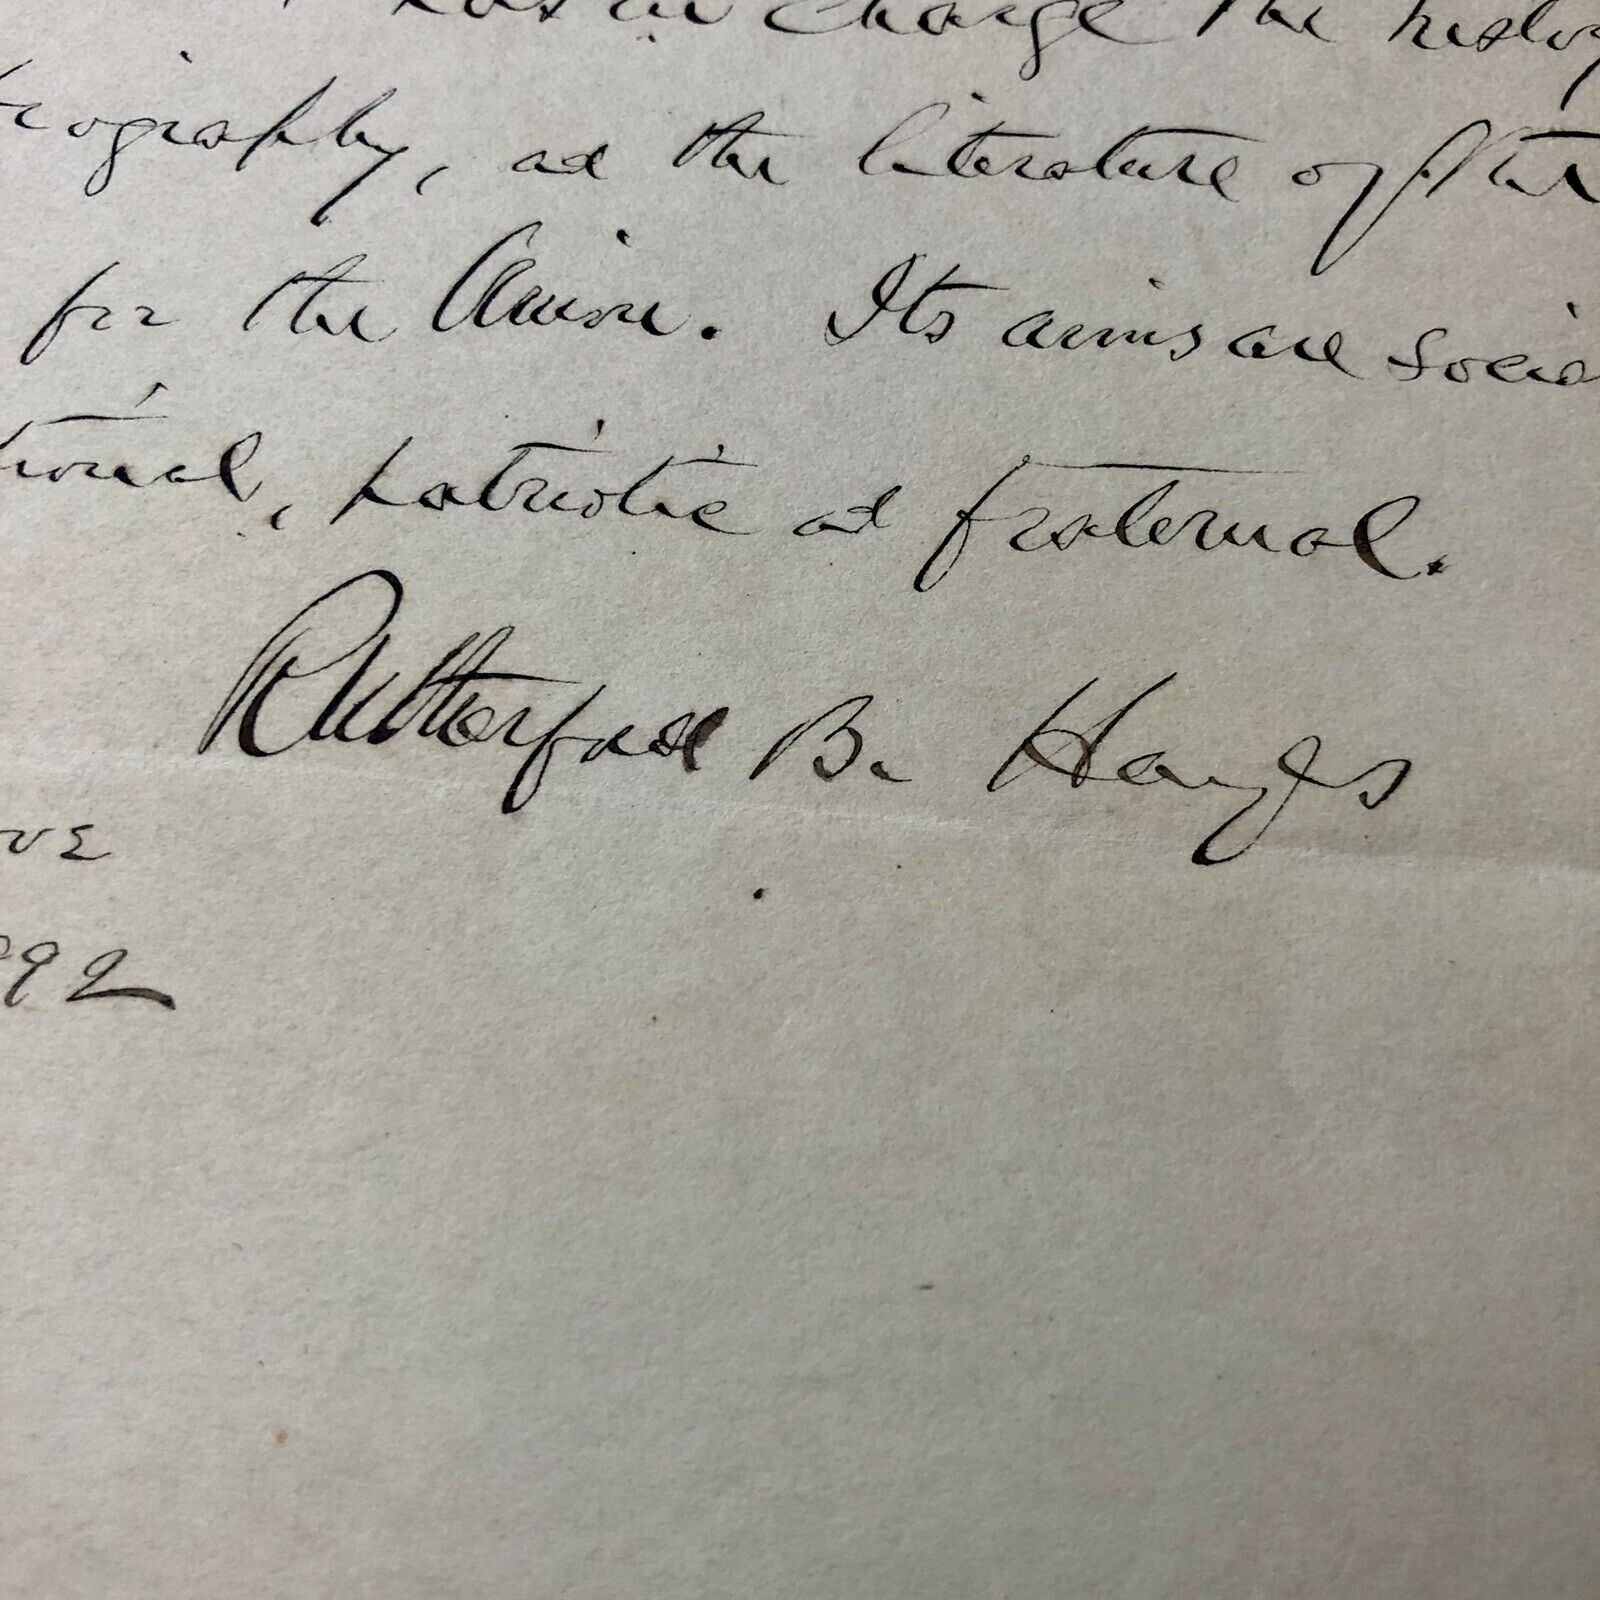 has in charge the history
iography, ad the literature of the
for the Union. Its aims are socia
tional, patriotic ad fraternal.
Rutherford B. Hayes
ove
892